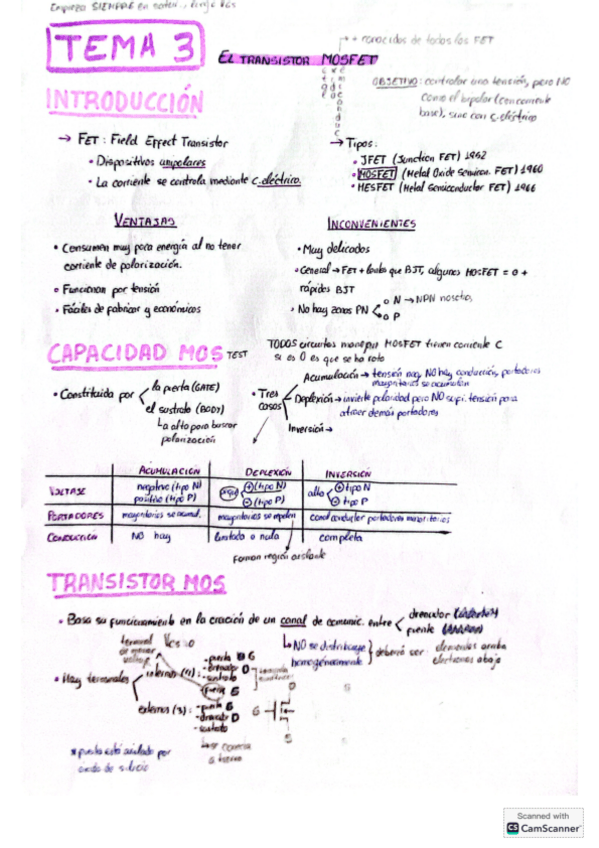 Empieza SIEMPRE en
TEMA 3
EL TRANSISTOR MOSFET
++ conocidos de todos los FET
OBJETIVO: controlar una tensión, pero NO
como el bipolar (con corriente
base), sino con c. eléctrico
INTRODUCCIÓN
→ FET: Field Effect Transistor
• Dispositivos unipolares
• La corriente se controla mediante c. eléctrico.
→ Tipos:
• JFET (Junction FET) 1952
• MOSFET (Metal Oxide Semicon. FET) 1960
• MESFET (Metal Semiconductor FET) 1966
VENTAJAS
• Consumen muy poca energía al no tener
corriente de polarización.
• Funcionan por tensión
• Fáciles de fabricar y económicos
INCONVENIENTES
• Muy delicados
• General → FET + lentos que BJT, algunos MOSFET = o +
rápidos BJT
• No hay zonas PN
N → NPN
P
CAPACIDAD MOS TEST
TODOS circuitos MOSFET tienen corriente C
si es 0 es que se ha roto
• Constituida por
la puerta (GATE)
el sustrato (BODY)
La alto para buscar
polarización
• Tres casos
Acumulación → tensión neg. NO hay conducción, portadores
mayoritarios se acumulan
Deplexión → invierte polaridad pero NO sufi. tensión para
atraer demás portadores
Inversión →
ACUMULACIÓN DEPLEXIÓN INVERSIÓN
VOLTAJE negativo (tipo N) + (tipo N) alto + tipo N
positivo (tipo P) - (tipo P) - tipo P
PORTADORES mayoritarios se acumul. mayoritarios se repelen canal conductor portadores minoritarios
CONDUCCIÓN NO hay limitada o nula completa
Forman región aislante
TRANSISTOR MOS
• Basa su funcionamiento en la creación de un canal de comunic. entre
drenador
fuente
NO se distribuye
homogéneamente
deberá ser: elementos arriba
electrones abajo
terminal
de menor
voltaje
• Hay terminales
internos (4):
- puerta G
- drenador D
- sustrato
- fuente S
externos (3):
- puerta G
- drenador D
- sustato
D
G
S
a tierra
* puerta está aislado por
oxido de silicio
Scanned with
CS CamScanner